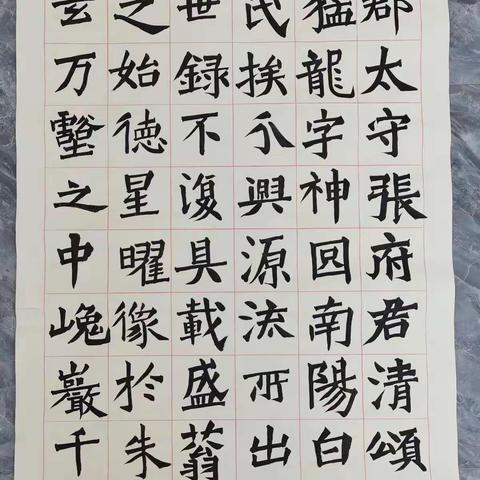 郡太守張府君清頌
猛龍字神冏南陽白
氏族分興源流所出
世録不復具載盛蓊
之始徳星曜像於朱
玄万壑之中巉巖千